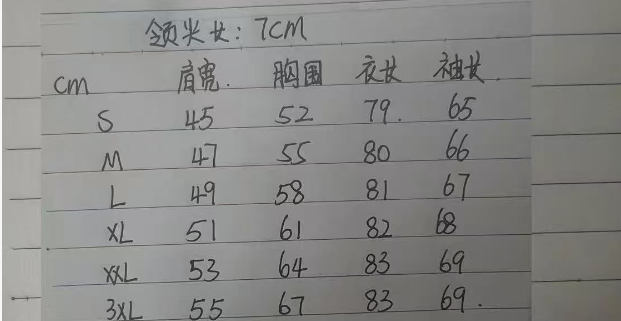 领尖长: 7cm
cm 肩宽. 胸围 衣长 袖长
S 45 52 79. 65
M 47 55 80 66
L 49 58 81 67
XL 51 61 82 68
XXL 53 64 83 69
3XL 55 67 83 69.